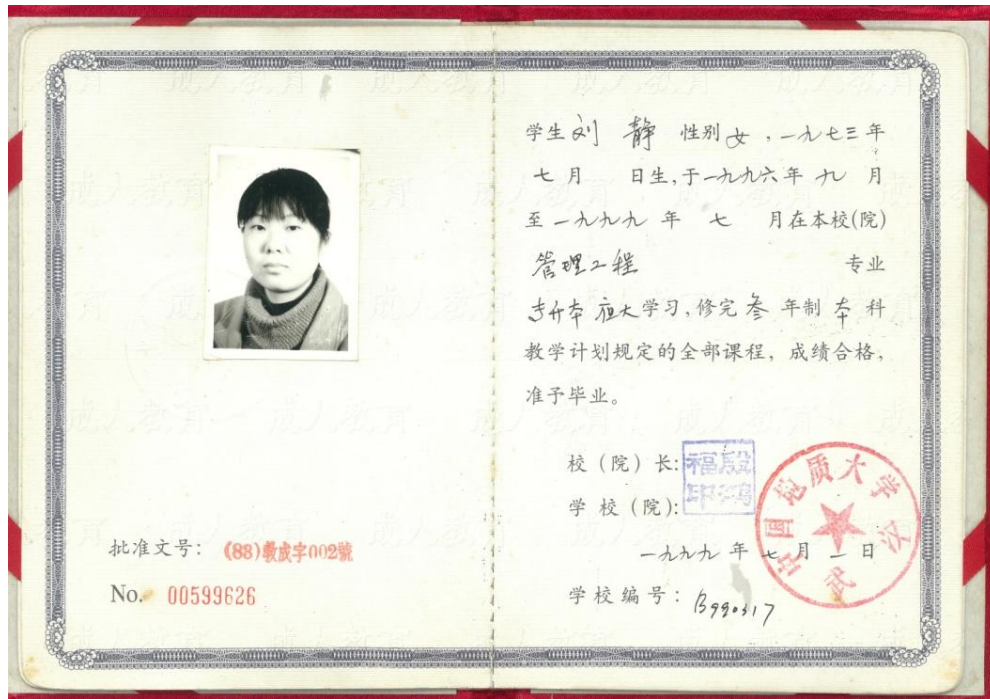 批准文号：(88)教成字002號
No. 00599626
学生 刘静 性别 女，一九七三年
七月 日生，于一九九六年九月
至一九九九年七月在本校(院)
管理工程 专业
专升本 夜大学习，修完叁年制本科
教学计划规定的全部课程，成绩合格，
准予毕业。
校（院）长：殷鸿福印
学校（院）：
中国地质大学 武汉
一九九九年七月一日
学校编号：B990317
成人教育